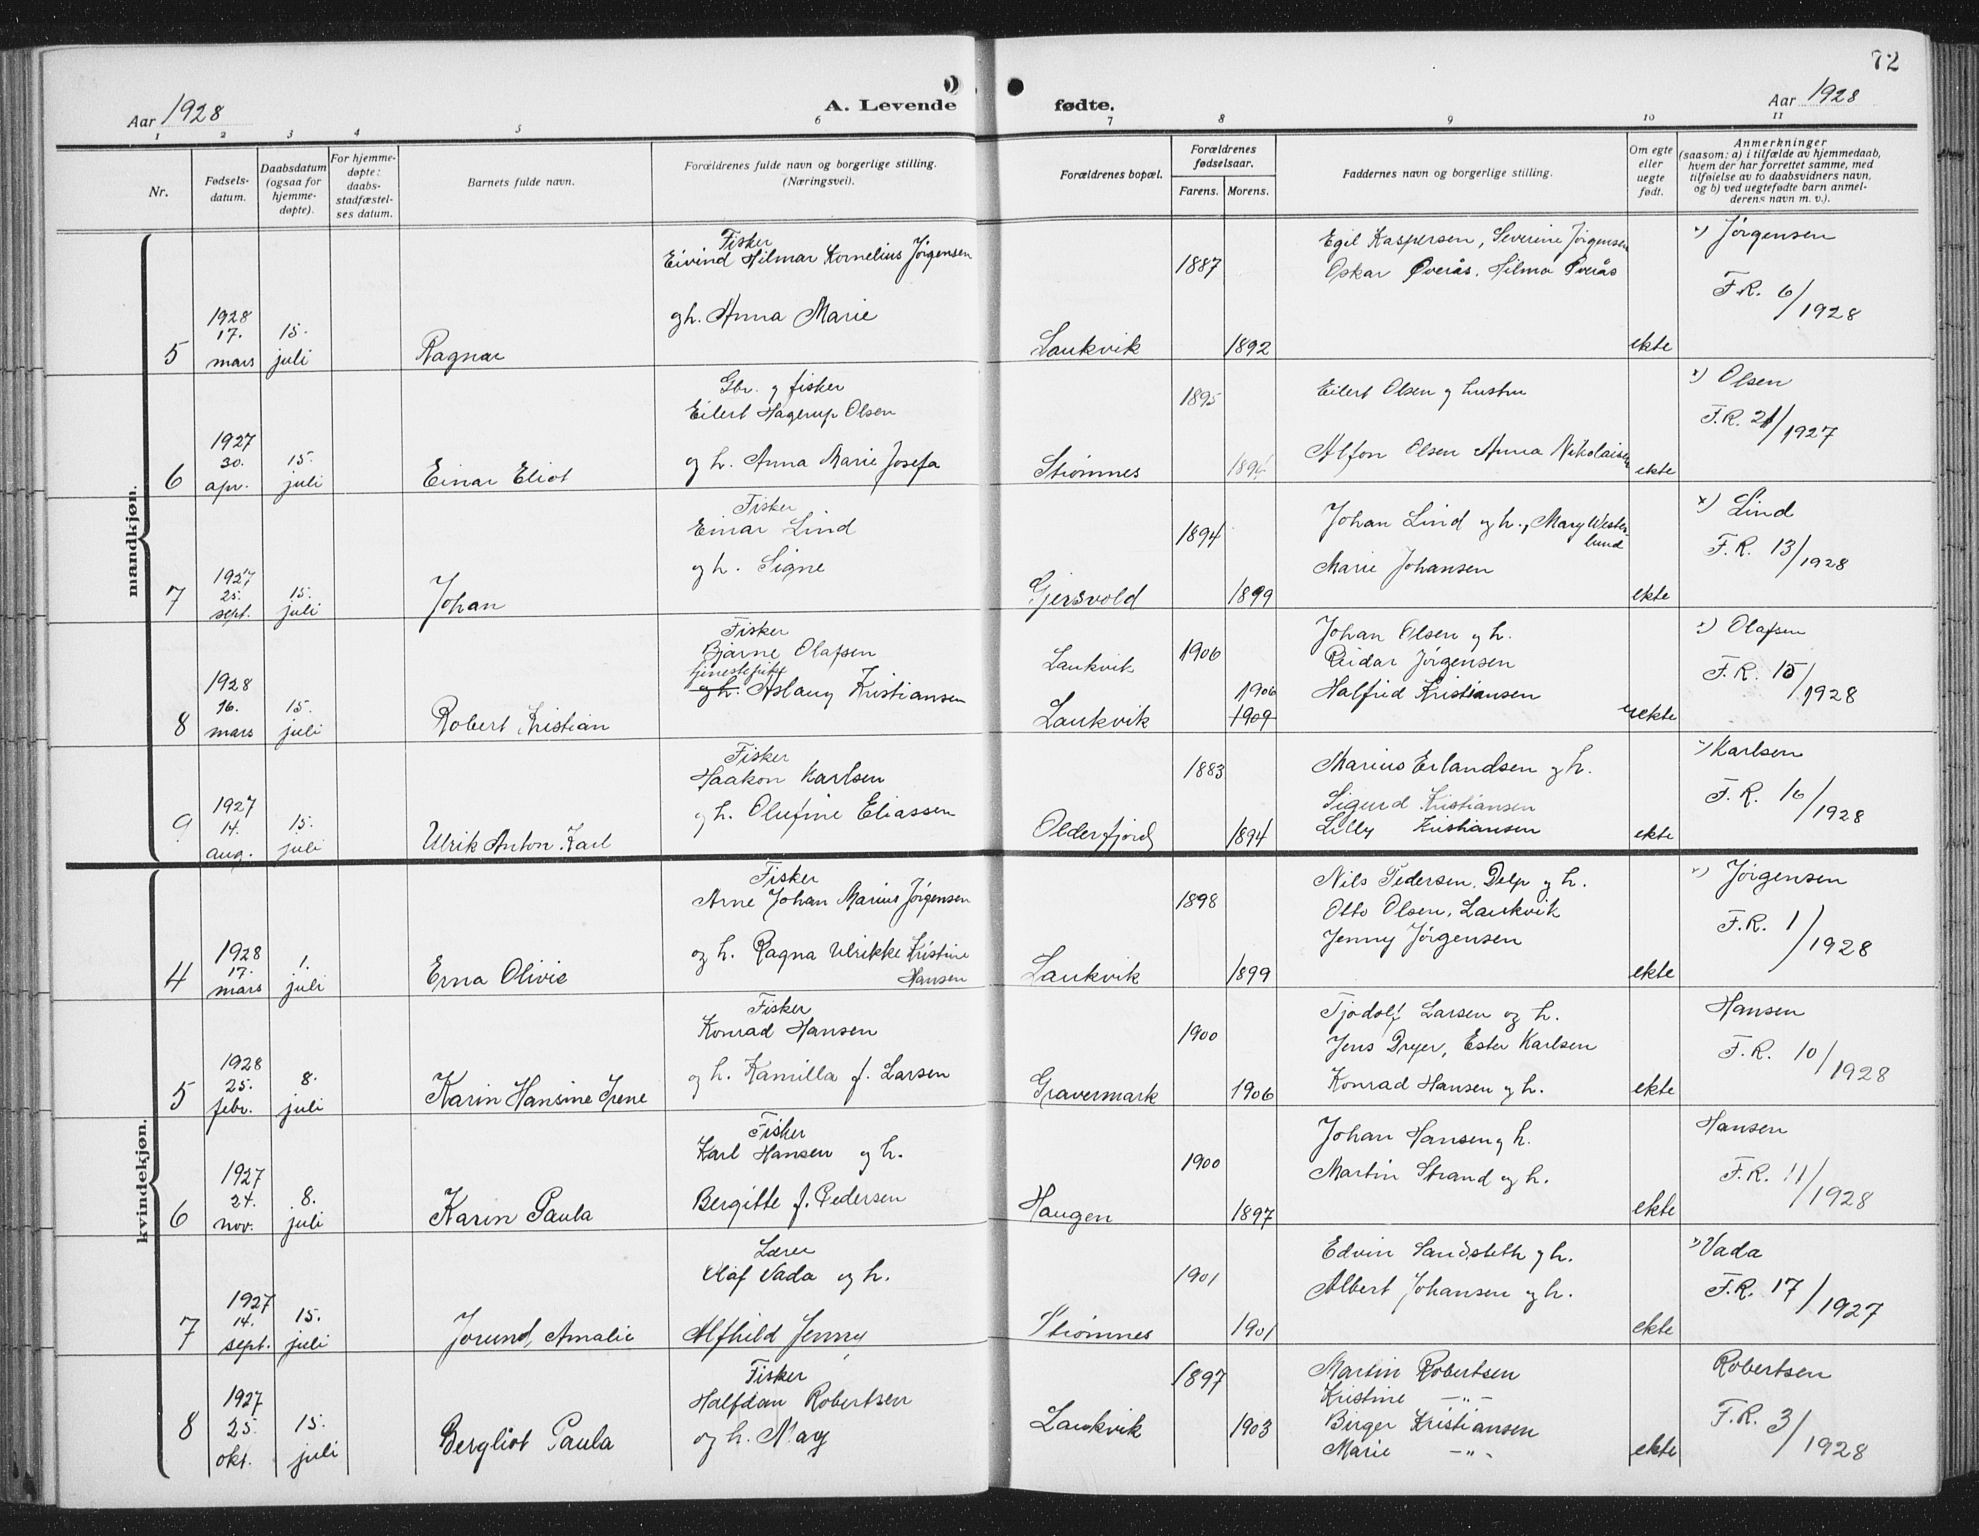 72
Aar 1928
A. Levende fødte.
Aar 1928
1 2 3 4 5 6 7 8 9 10 11
Nr.
Fødsels-
datum.
Daabsdatum
(ogsaa for
hjemme-
døpte).
For hjemme-
døpte:
daabs-
stadfæstel-
ses datum.
Barnets fulde navn.
Forældrenes fulde navn og borgerlige stilling.
(Næringsvei).
Forældrenes bopæl.
Forældrenes
fødselsaar.
Farens. Morens.
Faddernes navn og borgerlige stilling.
Om egte
eller
uegte
født.
Anmerkninger
(saasom: a) i tilfælde av hjemmedaab,
hvem der har forrettet samme, med
tilføielse av to daabsvidners navn,
og b) ved uegtefødte barn anmel-
derens navn m. v.).
mandkjøn.
5
1928
17.
mars
15.
juli
Ragnar
Fisker
Eivind Hilmar Kornelius Jørgensen
og h. Anna Marie
Laukvik
1887
1892
Egil Kaspersen, Severine Jørgensen
Oskar Øverås, Hilma Øverås
ekte
x) Jørgensen
F.R. 6/1928
6
1927
30.
apr.
15.
juli
Einar Eliot
Gbr. og fisker
Eilert Hagerup Olsen
og h. Anna Marie Josefa
Strømnes
1895
Eilert Olsen og hustru
Alfon Olsen Anna Nikolaisen
ekte
x) Olsen
F.R. 21/1927
7
1927
25.
sept.
15.
juli
Johan
Fisker
Einar Lind
og h. Signe
Gjersvold
1894
1899
Johan Lind og h., Mary Wester-
lund
Marie Johansen
ekte
x) Lind
F.R. 13/1928
8
1928
16.
mars
15.
juli
Robert Kristian
Fisker
Bjarne Olafsen
tjenestepike
og h. Aslaug Kristiansen
Laukvik
Laukvik
1906
1906
1909
Johan Olsen og h.
Reidar Jørgensen
Halfrid Kristiansen
uekte
x) Olafsen
F.R. 15/1928
9
1927
14.
aug.
15.
juli
Ulrik Anton Karl
Fisker
Haakon Karlsen
og h. Olufine Eliassen
Olderfjord
1883
1894
Marius Erlandsen og h.
Sigurd Kristiansen
Lilly Kristiansen
ekte
x) Karlsen
F.R. 16/1928
kvindekjøn.
4
1928
17.
mars
1.
juli
Erna Olivie
Fisker
Arne Johan Marius Jørgensen
og h. Ragna Ulrikke Kristine
Hansen
Laukvik
1898
1899
Nils Pedersen, Delp og h.
Otto Olsen, Laukvik
Jenny Jørgensen
ekte
x) Jørgensen
F.R. 1/1928
5
1928
25.
febr.
8.
juli
Karin Hansine Irene
Fisker
Konrad Hansen
og h. Kamilla f. Larsen
Gravermark
1900
1906
Tjodolf Larsen og h.
Jens Dryer, Ester Karlsen
Konrad Hansen og h.
ekte
Hansen
F.R. 10/1928
6
1927
24.
nov.
8.
juli
Karin Paula
Fisker
Karl Hansen og h.
Bergitte f. Pedersen
Haugen
1900
1897
Johan Hansen og h.
Martin Strand og h.
ekte
Hansen
F.R. 11/1928
7
1927
14.
sept.
15.
juli
Jorund, Amalie
Lærer
Olaf Vada og h.
Alfhild Jenny
Strømnes
1901
1901
Edvin Sandsleth og h.
Albert Johansen og h.
ekte
x) Vada
F.R. 17/1927
8
1927
25.
okt.
15.
juli
Bergliot Paula
Fisker
Halfdan Robertsen
og h. Mary
Laukvik
1897
1903
Martin Robertsen
Kristine —"—
Birger Kristiansen
Marie —"—
ekte
Robertsen
F.R. 3/1928